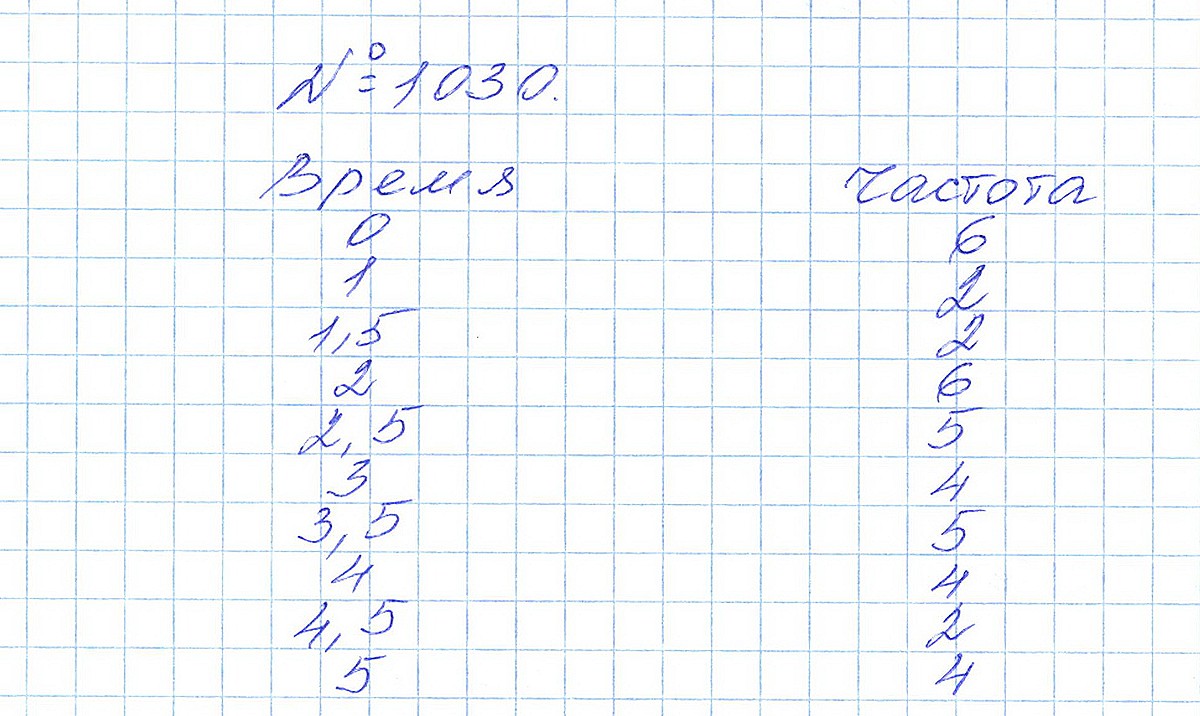 № 1030.
Время Частота
0 6
1 2
1,5 2
2 6
2,5 5
3 4
3,5 5
4 4
4,5 2
5 4